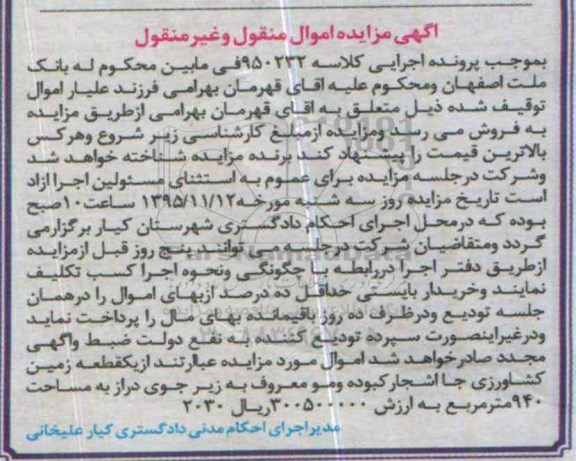 اگهی مزایده اموال منقول وغیرمنقول
بموجب پرونده اجرایی کلاسه ۹۵۰۲۳۲فی مابین محکوم له بانک
ملت اصفهان ومحکوم علیه اقای قهرمان بهرامی فرزند علیار اموال
توقیف شده ذیل متعلق به اقای قهرمان بهرامی ازطریق مزایده
به فروش می رسد ومزایده ازمبلغ کارشناسی زیر شروع وهرکس
بالاترین قیمت را پیشنهاد کند برنده مزایده شناخته خواهد شد
وشرکت درجلسه مزایده برای عموم به استثنای مسئولین اجرا ازاد
است تاریخ مزایده روز سه شنبه مورخه۱۳۹۵/۱۱/۱۲ ساعت۱۰صبح
بوده که درمحل اجرای احکام دادگستری شهرستان کیار برگزارمی
گردد ومتقاضیان شرکت درجلسه می توانند پنج روز قبل ازمزایده
ازطریق دفتر اجرا دررابطه با چگونگی ونحوه اجرا کسب تکلیف
نمایند وخریدار بایستی حداقل ده درصد ازبهای اموال را درهمان
جلسه تودیع ودرظرف ده روز باقیمانده بهای مال را پرداخت نماید
ودرغیراینصورت سپرده تودیع کننده به نفع دولت ضبط واگهی
مجدد صادرخواهد شد اموال مورد مزایده عبارتند ازیکقطعه زمین
کشاورزی جا اشجارکبوده ومو معروف به زیر جوی دراز به مساحت
۹۴۰مترمربع به ارزش ۳۰۰۵۰۰۰۰۰ریال ۲۰۳۰
مدیراجرای احکام مدنی دادگستری کیار علیخانی